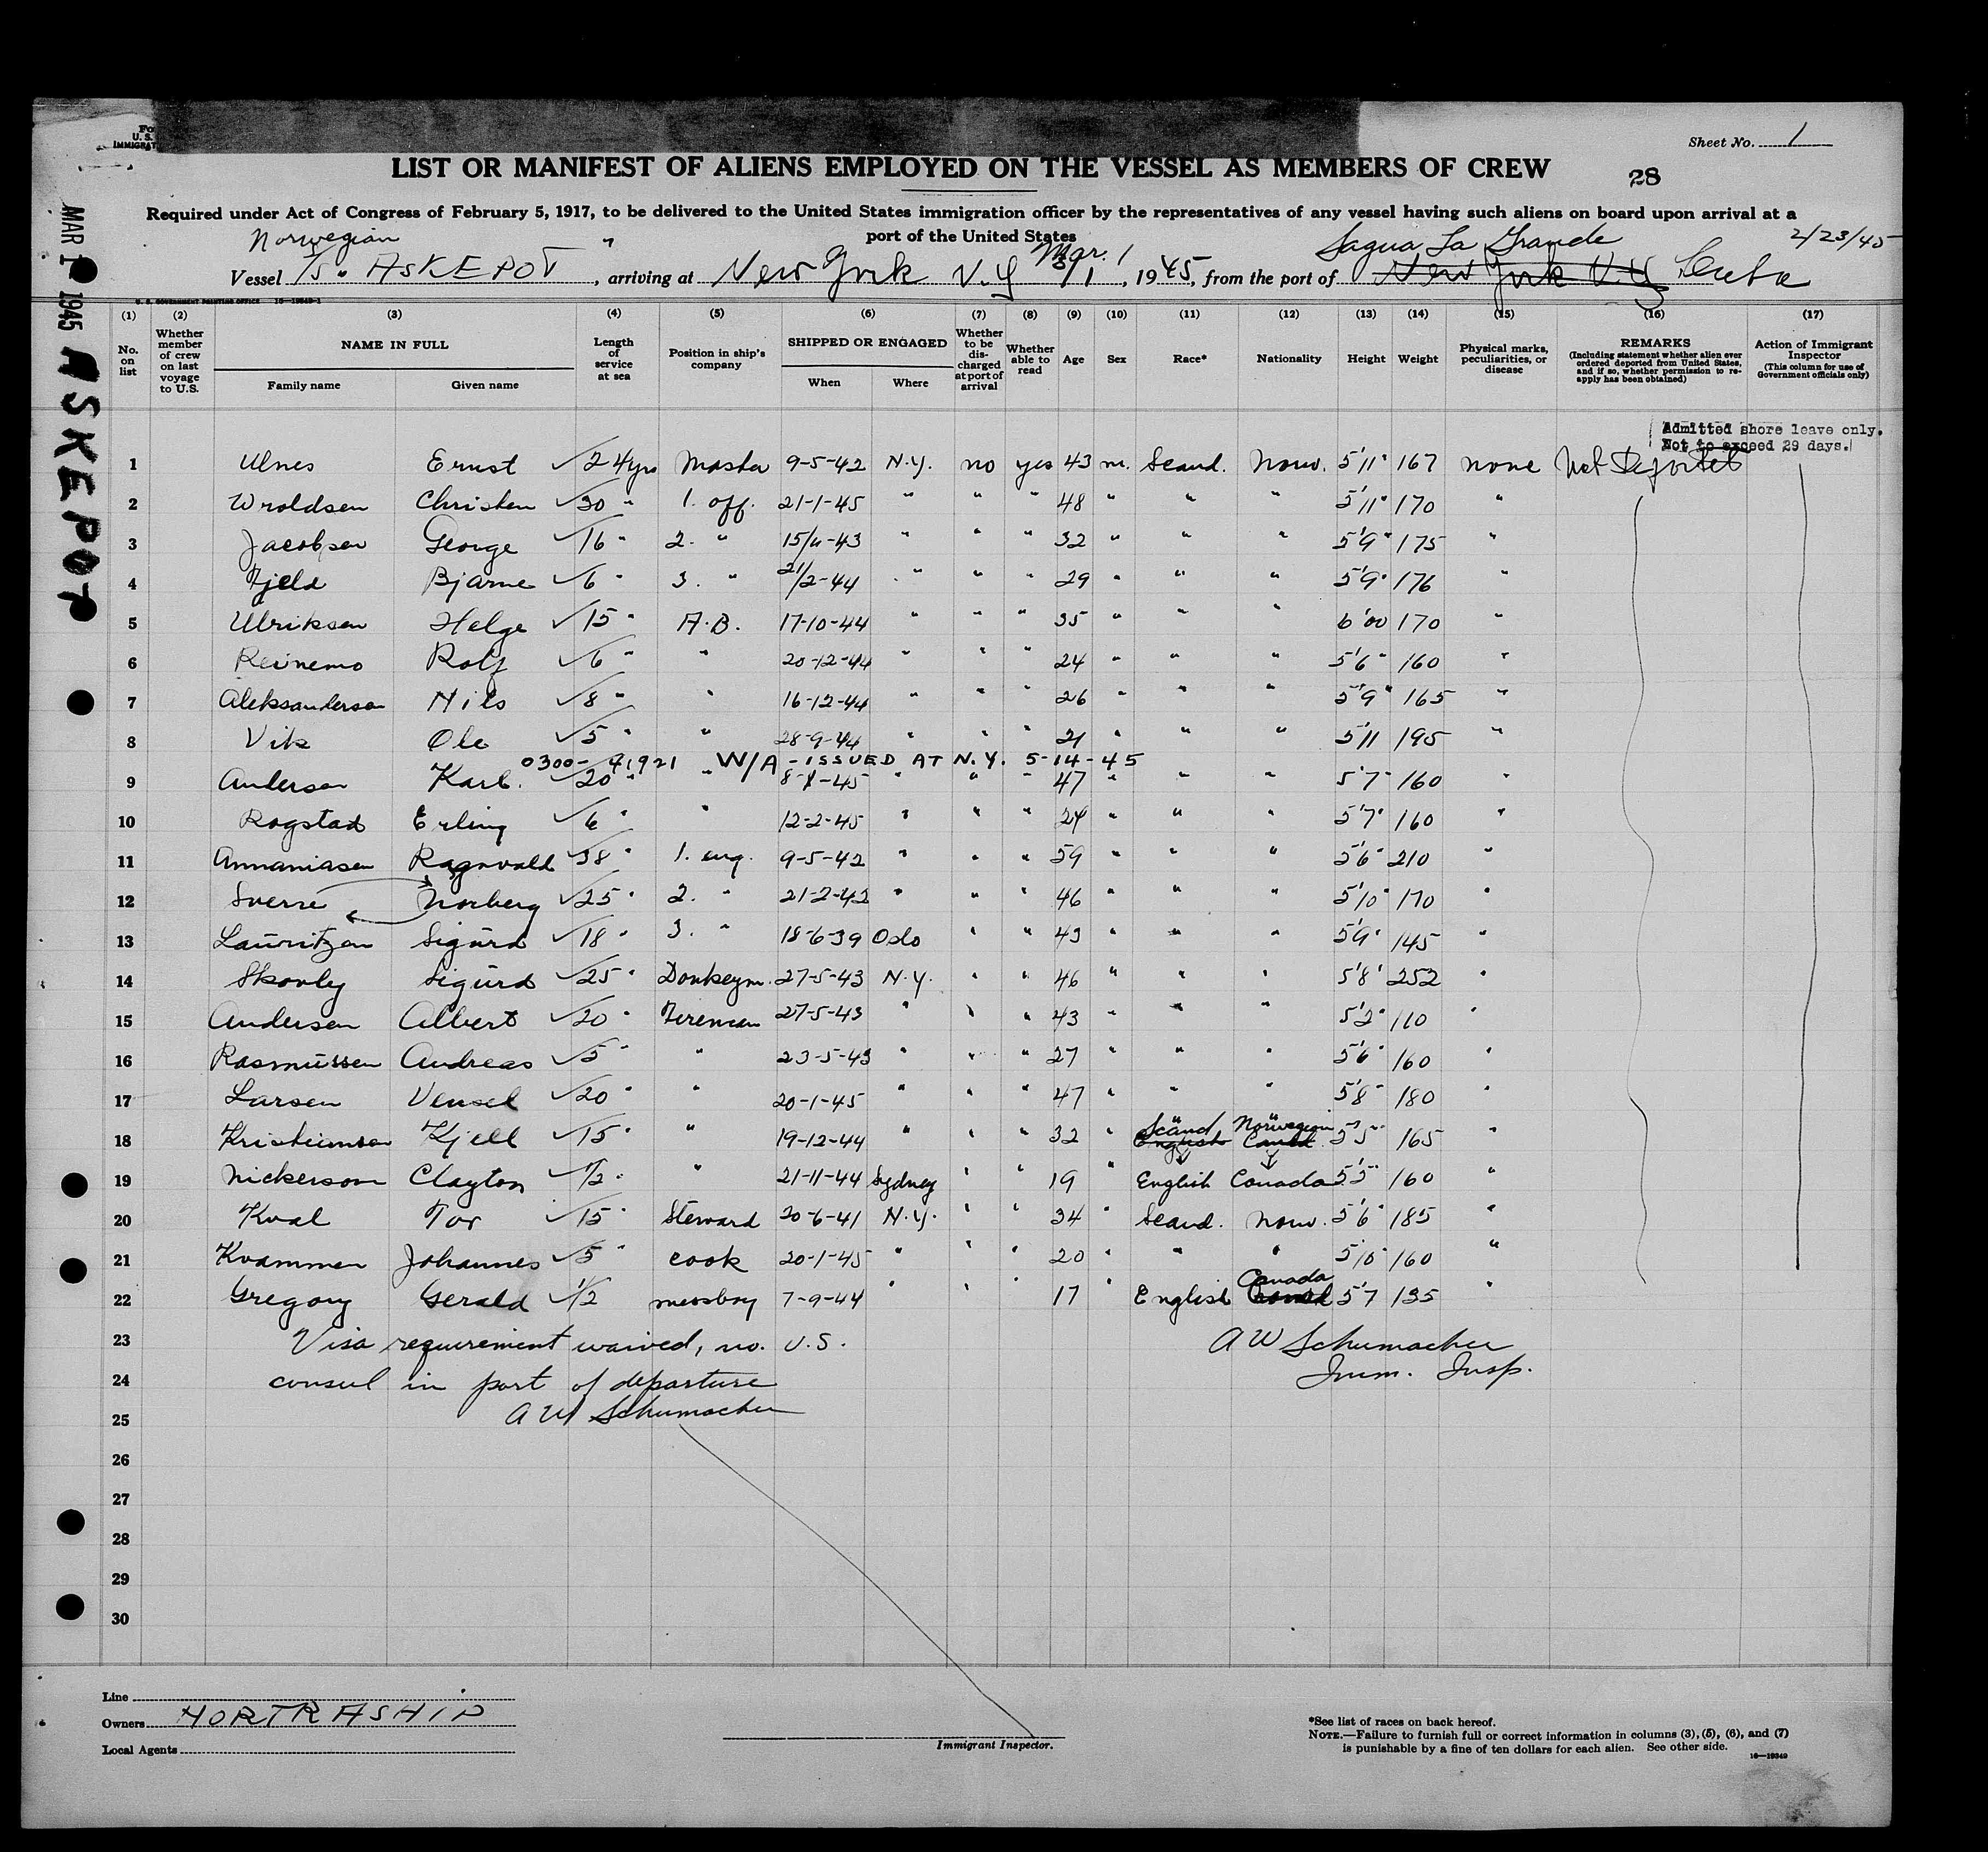 Fo
U. S.
IMMIGRAT
Sheet No. 1
LIST OR MANIFEST OF ALIENS EMPLOYED ON THE VESSEL AS MEMBERS OF CREW
28
Required under Act of Congress of February 5, 1917, to be delivered to the United States immigration officer by the representatives of any vessel having such aliens on board upon arrival at a
port of the United States
Norwegian Mar. 1 Sagua La Grande 2/23/45
Vessel T/S. ASKEPOT, arriving at New York N.Y 3/1, 1945, from the port of New York N.Y Cuba
U. S. GOVERNMENT PRINTING OFFICE 16—19349-1
MAR 1 1945 ASKEPOT
(1) (2) (3) (4) (5) (6) (7) (8) (9) (10) (11) (12) (13) (14) (15) (16) (17)
No. on list
Whether member of crew on last voyage to U.S.
NAME IN FULL
Family name Given name
Length of service at sea
Position in ship's company
SHIPPED OR ENGAGED
When Where
Whether to be discharged at port of arrival
Whether able to read
Age
Sex
Race*
Nationality
Height
Weight
Physical marks, peculiarities, or disease
REMARKS
(Including statement whether alien ever ordered deported from United States, and if so, whether permission to reapply has been obtained)
Action of Immigrant Inspector
(This column for use of Government officials only)
Admitted shore leave only.
Not to exceed 29 days.
1 Ulnes Ernst 24yrs Master 9-5-42 N.Y. no yes 43 m. Scand. Norw. 5'11" 167 none Not Deported
2 Wroldsen Christen 30 " 1. off. 21-1-45 " " " 48 " " " 5'11" 170 "
3 Jacobsen George 16 " 2. " 15/11-43 " " " 32 " " " 5'9" 175 "
4 Fjeld Bjarne 6 " 3. " 21/2-44 " " " 29 " " " 5'9" 176 "
5 Ulriksen Helge 15 " A.B. 17-10-44 " " " 35 " " " 6'00 170 "
6 Reinemo Rolf 6 " " 20-12-44 " " " 24 " " " 5'6" 160 "
7 Aleksandersen Nils 8 " " 16-12-44 " " " 26 " " " 5'9" 165 "
8 Vik Ole 5 " " 28-9-44 " " " 21 " " " 5'11 195 "
0300-91921 W/A - ISSUED AT N.Y. 5-14-45
9 Andersen Karl. 20 " " 8-1-45 " " " 47 " " " 5'7" 160 "
10 Rogstad Erling 6 " " 12-2-45 " " " 24 " " " 5'7" 160 "
11 Annaniasen Ragnvald 38 " 1. eng. 9-5-42 " " " 59 " " " 5'6" 210 "
12 Sverre Norberg 25 " 2. " 21-2-42 " " " 46 " " " 5'10" 170 "
13 Lauritzen Sigurd 18 " 3. " 18-6-39 Oslo " " 43 " " " 5'9" 145 "
14 Skovly Sigurd 25 " Donkeym. 27-5-43 N.Y. " " 46 " " " 5'8" 252 "
15 Andersen Albert 20 " Fireman 27-5-43 " " " 43 " " " 5'2" 110 "
16 Rasmussen Andreas 5 " " 23-5-43 " " " 27 " " " 5'6" 160 "
17 Larsen Vensel 20 " " 20-1-45 " " " 47 " " " 5'8" 180 "
Scand Norwegian
18 Kristiansen Kjell 15 " " 19-12-44 " " " 32 " English Canad. 5'5" 165 "
19 Nickerson Clayton 1/2 " " 21-11-44 Sydney " " 19 " English Canada 5'5" 160 "
20 Kval Tor 15 " Steward 20-6-41 N.Y. " " 34 " Scand. Norw. 5'6" 185 "
21 Kvammen Johannes 5 " cook 20-1-45 " " " 20 " " " 5'10" 160 "
Canada
22 Gregory Gerald 1/2 messboy 7-9-44 " " " 17 " English 5'7 135 "
23 Visa requirement waived, no. U.S. A W Schumacher
24 consul in port of departure Imm. Insp.
25 A W Schumacher
26
27
28
29
30
Line
Owners NORTRASHIP
Local Agents
Immigrant Inspector.
*See list of races on back hereof.
NOTE.—Failure to furnish full or correct information in columns (3), (5), (6), and (7)
is punishable by a fine of ten dollars for each alien. See other side.
16—19349